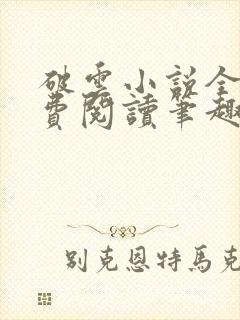 破雲小說全
費閱讀筆趣
別克恩特馬克